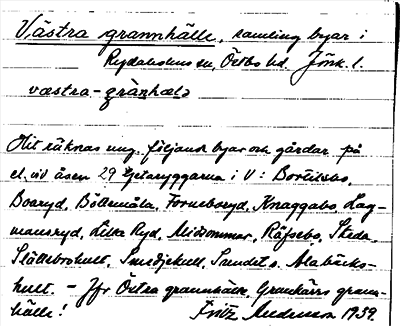 Västra grannhälle, samling byar i
Rydaholms sn, Östbo hd. Jönk. l.
västra-gränhælə
Hit räknas ung. följande byar och gårdar på
el. vid åsen 29 Getaryggarna i V: Bortebo,
Boaryd, Böllemåla, Forneboryd, Knaggabo, Lag-
mansryd, Lilla Ryd, Midsommar, Räfsebo, Skeda,
Slättebrohult, Smedjekull, Sundet o. Alabäcks-
hult. – Jfr Östra grannhälle, Grankärrs grann-
hälle!
Fritz Anderson 1939